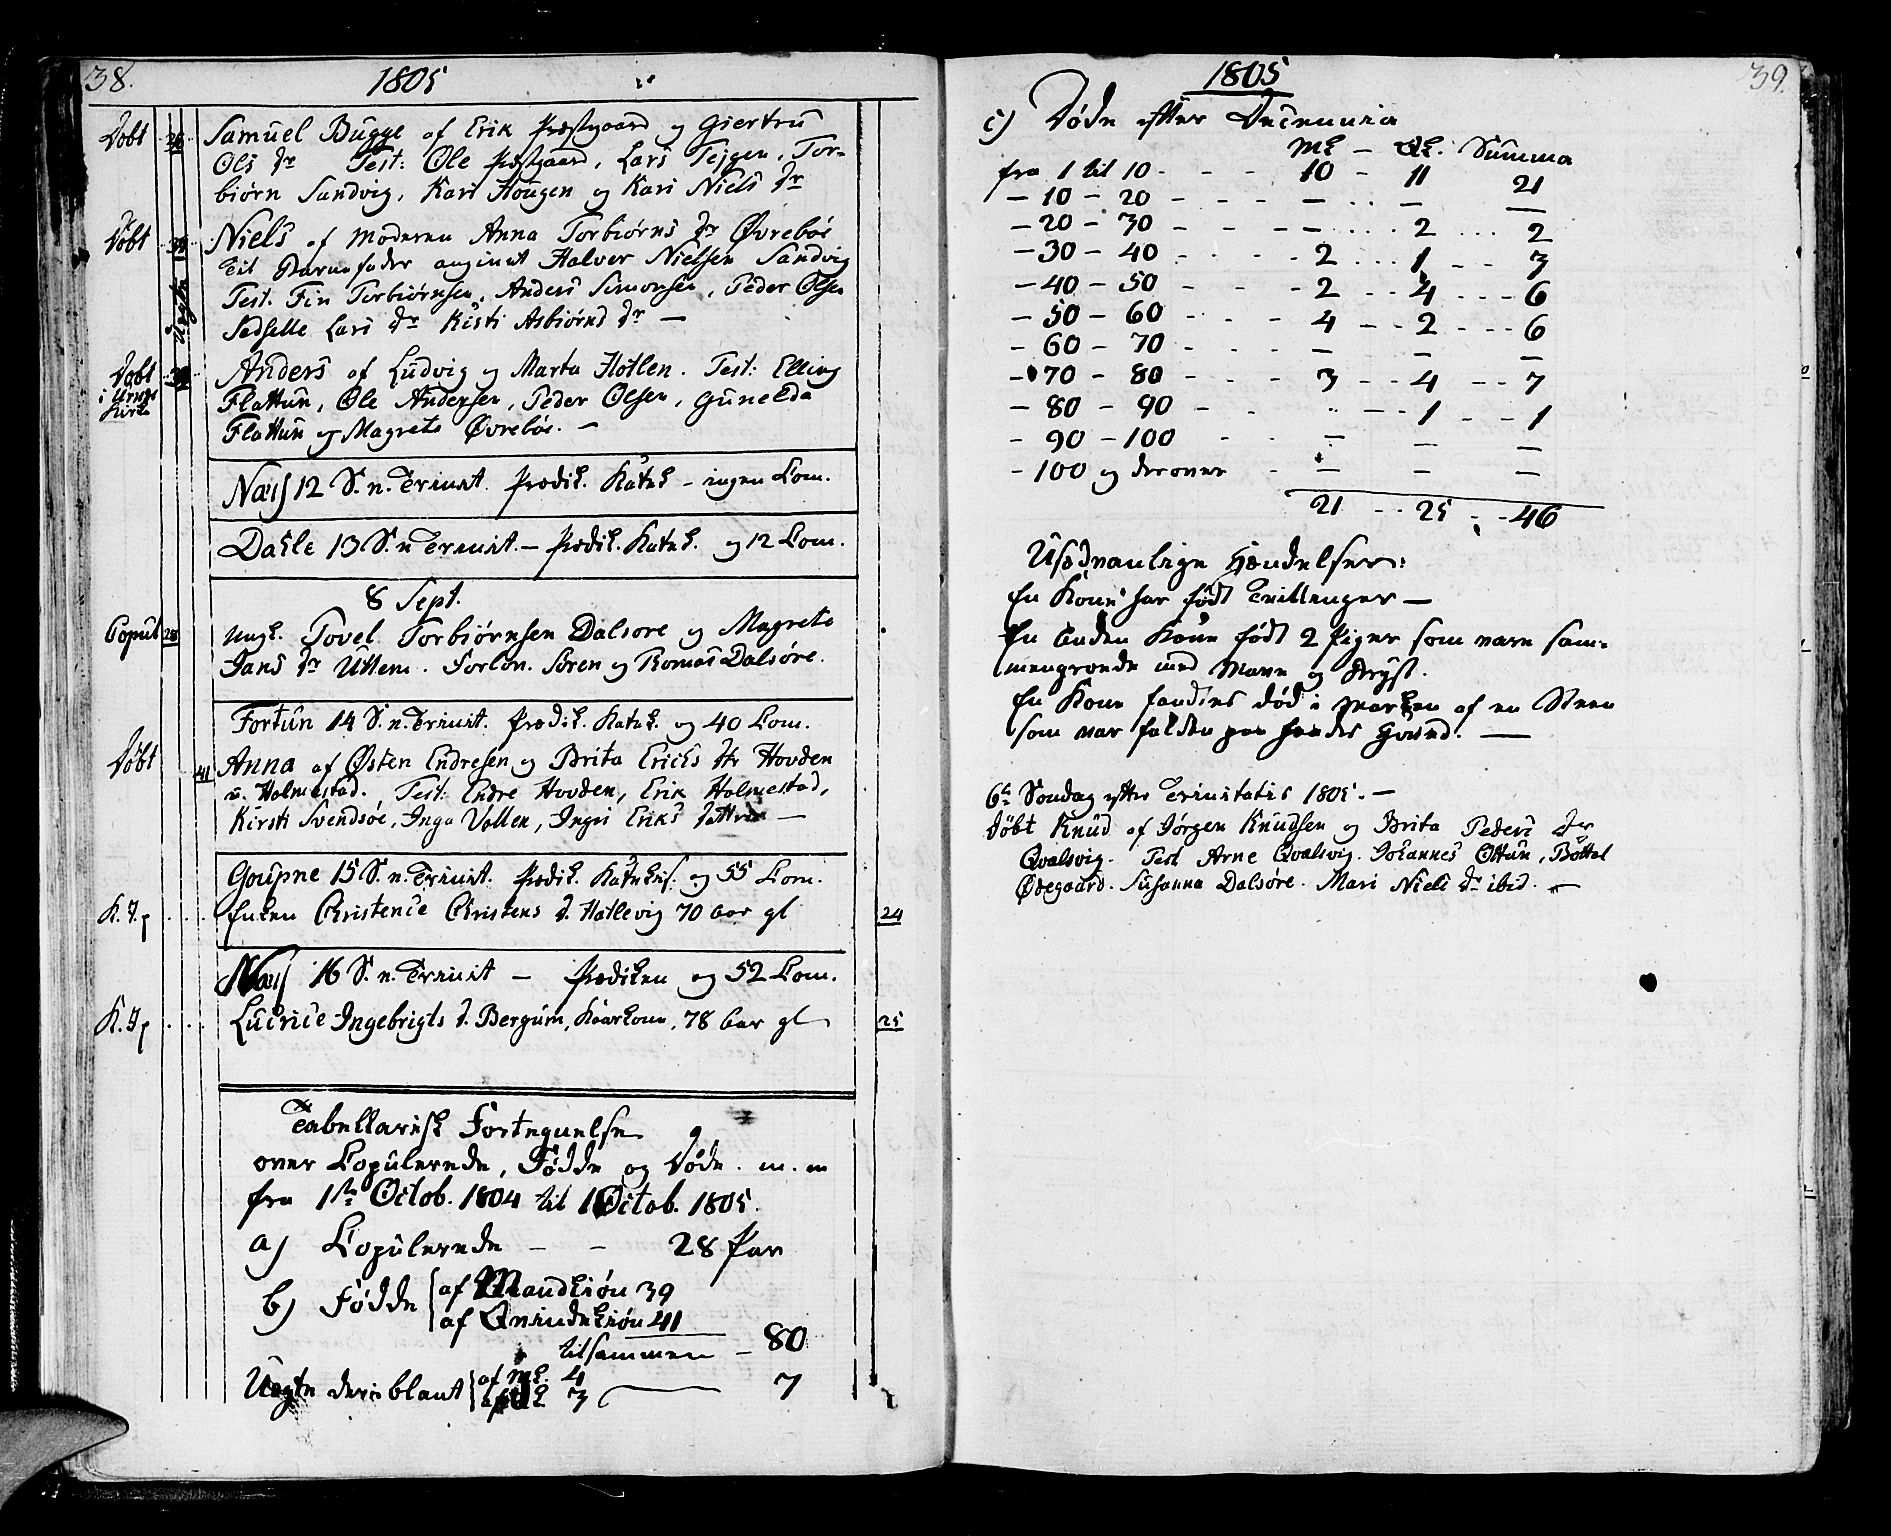 38.
1805
Døbt Samuel Bugge af Erik Præstgaard og Giertru
Ols dr Test: Ole Præstgaard, Lars Tejgen, Tor-
biørn Sandvig, Kari Hougen og Kari Niels dr
Døbt Uægte Niels af Moderen Anna Torbiørns dr Øvrebøe
til Barnefader angivet Halvor Nielsen Sandvig
Test. Fin Torbiørnsen, Anders Simonsen, Peder Olsen
Lars dr Kisti Asbiørns dr —
Døbt i Urnes Kirke Anders af Ludvig og Marta Hotlen. Test: Elling
Flattun, Ole Andersen, Peder Olsen, Gunelda
Flattun og Magrete Øvrebøe. —
Næss 12 S. n. Trinit. Prædik. Katek – ingen Com.
Dahle 13 S. n Trinit. — Prædik. Katek. og 12 Com.
8 Sept.
Copul 28 ungk. Tovel Torbiørnsen Dalsøre og Magrete
Jans dr Uttem. Forlov. Søren og Tomas Dalsøre.
Fortun 14 S. n. Trinit. Prædik. Katek. og 40 Com.
Døbt 41 Anna af Østen Endresen og Brita Ericks dr Hovden
o. Holmestad. Test: Endre Hovden, Erik Holmestad,
Kirsti Svendsøe, Inga Vollen, Ingri Eriks datter —
Goupne 15 S. n. Trinit. Prædik. Katekis. og 55 Com.
K. Jp Enken Christence Christens d. Hatlevig 70 aar gl 24
Næss 16 S. n. Trinit — Prædiken og 52 Com.
K. Jp Lucrice Ingebrigts d. Bergum, Kaarkone, 78 aar gl 25
Tabellarisk Fortegnelse
over Copulerede, Fødde og Døde. m. m
fra 1ste Octob. 1804 til 1 Octob. 1805.
a) Copulerede – – 28 Par
b) Fødde af Mandkiøn 39
af Qvindekiøn 41
tilsammen — 80
Uægte deriblant af Mk. 4
af Qk 3 — 7
39.
1805
c) Døde efter Decennia
Mk — Qk. Summa
fra 1 til 10 - - - 10 - 11 21
— 10 - 20 - - - — .. — —
— 20 - 30 - - - — .... 2 ... 2
— 30 - 40 - - - 2 ... 1 - - 3
— 40 - 50 - - - 2 - - 4 - - - 6
— 50 - 60 - - - 4 - - 2 - - - 6
— 60 - 70 - - — — —
— 70 - 80 - - - 3 - - 4 - - 7
— 80 - 90 - - .. — 1 - - 1
- 90 - 100 - - — — —
- 100 og derover - — — —
21 - - 25 - - 46
Usædvanlige Hændelser:
En Kone har født Trillenger —
En anden Kone født 2 Piger som vare sam-
mengroede med Mave og Bryst.
En Kone fandtes død i Marken af en Steen
som var falden paa hendes Hoved. —
6te Søndag efter Trinitatis 1805. —
Døbt Knud af Jørgen Knudsen og Brita Peders dr
Qvalsvig. Test Arne Qvalsvig. Johannes Ottun, Bottel
Ødegaard. Susanna Dalsøre. Mari Niels dr ibid. —